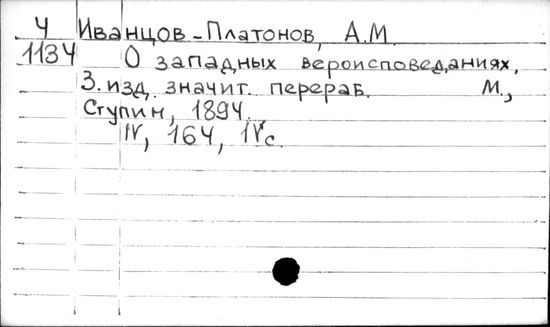 Ч Иванцов-Платонов, А.М.
1134 О западных вероисповеданиях,
3. изд. значит. перераб. М.,
Ступин, 1894.
IV, 164, IVс.